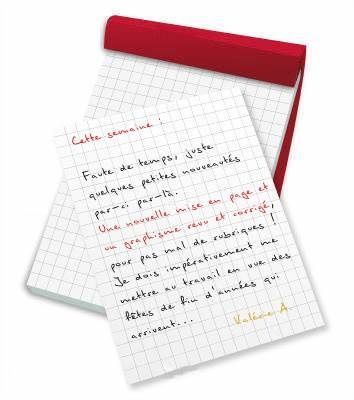 Cette semaine :
Faute de temps, juste
quelques petites nouveautés
par-ci par-là.
Une nouvelle mise en page et
un graphisme revu et corrigé,
pour pas mal de rubriques !
Je dois impérativement me
mettre au travail en vue des
fêtes de fin d'années qui
arrivent...
Valérie A.